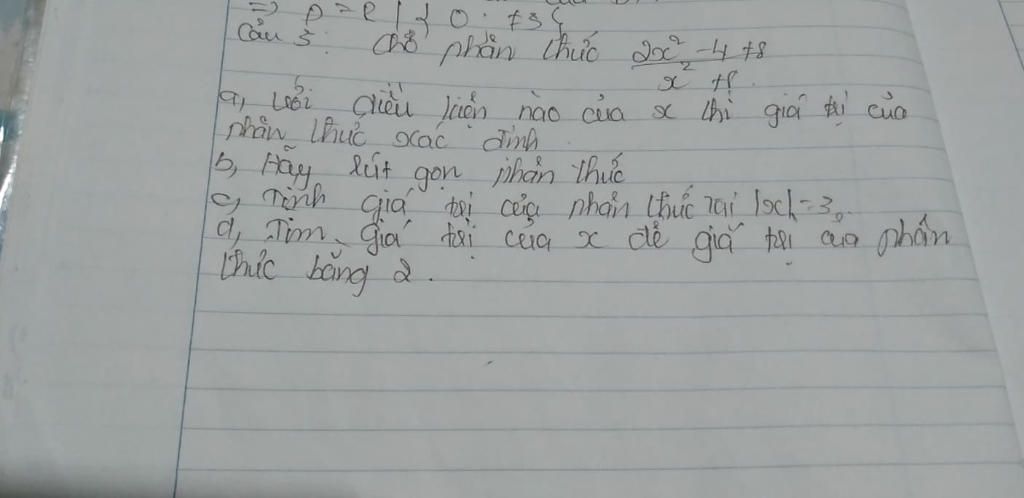 => D = R | { 0; ±3 }
Câu 3: Cho phân thức 2x² - 4 + 8 / x² + 8
a, Với điều kiện nào của x thì giá trị của
phân thức xác định.
b, Hãy rút gọn phân thức
c, Tính giá trị của phân thức tại |x| = 3.
d, Tìm giá trị của x để giá trị của phân
thức bằng 2.